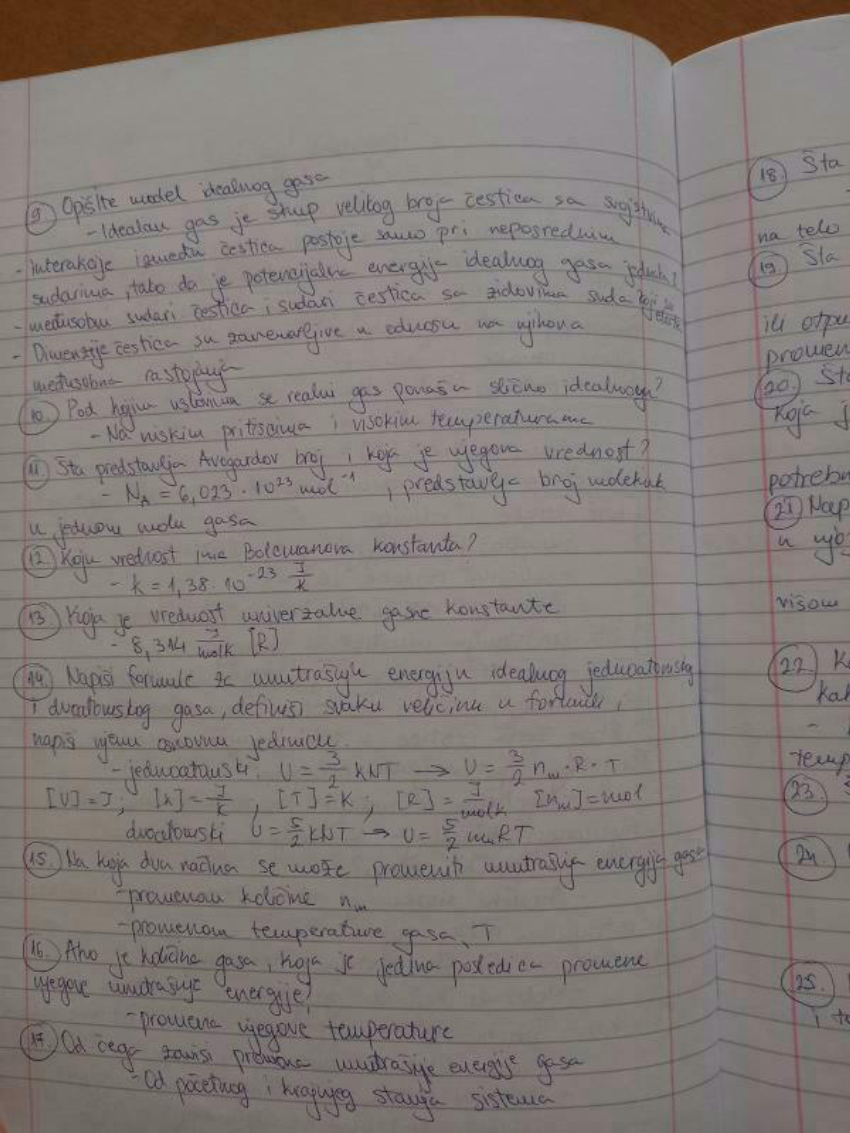 9. Opišite model idealnog gasa
- Idealan gas je skup velikog broja čestica sa svojstvima
- Interakcije između čestica postoje samo pri neposrednim
sudarima, tako da je potencijalna energija idealnog gasa
- međusobni sudari čestica i sudari čestica sa zidovima suda
- Dimenzije čestica su zanemarljive u odnosu na njihova
međusobna rastojanja
10. Pod kojim uslovima se realni gas ponaša slično idealnom?
- Na niskim pritiscima i visokim temperaturama
11. Šta predstavlja Avogardov broj i koja je njegova vrednost?
- NA = 6,023 · 10²³ mol⁻¹, predstavlja broj molekula
u jednom molu gasa
12. Koju vrednost ima Bolcmanova konstanta?
- k = 1,38 · 10⁻²³ J/K
13. Koja je vrednost univerzalne gasne konstante
- 8,314 J/molK [R]
14. Napiši formule za unutrašnju energiju idealnog jednoatomskog
i dvoatomskog gasa, definiši svaku veličinu u formuli i
napiši njenu osnovnu jedinicu.
- jednoatomski: U = 3/2 kNT → U = 3/2 nm · R · T
[U] = J; [k] = J/K, [T] = K; [R] = J/molK [nm] = mol
dvoatomski U = 5/2 kNT → U = 5/2 nmRT
15. Na koja dva načina se može promeniti unutrašnja energija gasa
- promenom količine nm
- promenom temperature gasa, T
16. Ako je količina gasa, koja je jedina posledica promene
njegove unutrašnje energije?
- promena njegove temperature
17. Od čega zavisi promena unutrašnje energije gasa
- Od početnog i krajnjeg stanja sistema
18. Šta
na telo
19. Šta
ili otpu
promen
20. Šta
koja j
potrebn
21. Nap
u njo
višom
22. K
kak
-
temp
23.
24.
25.
i to